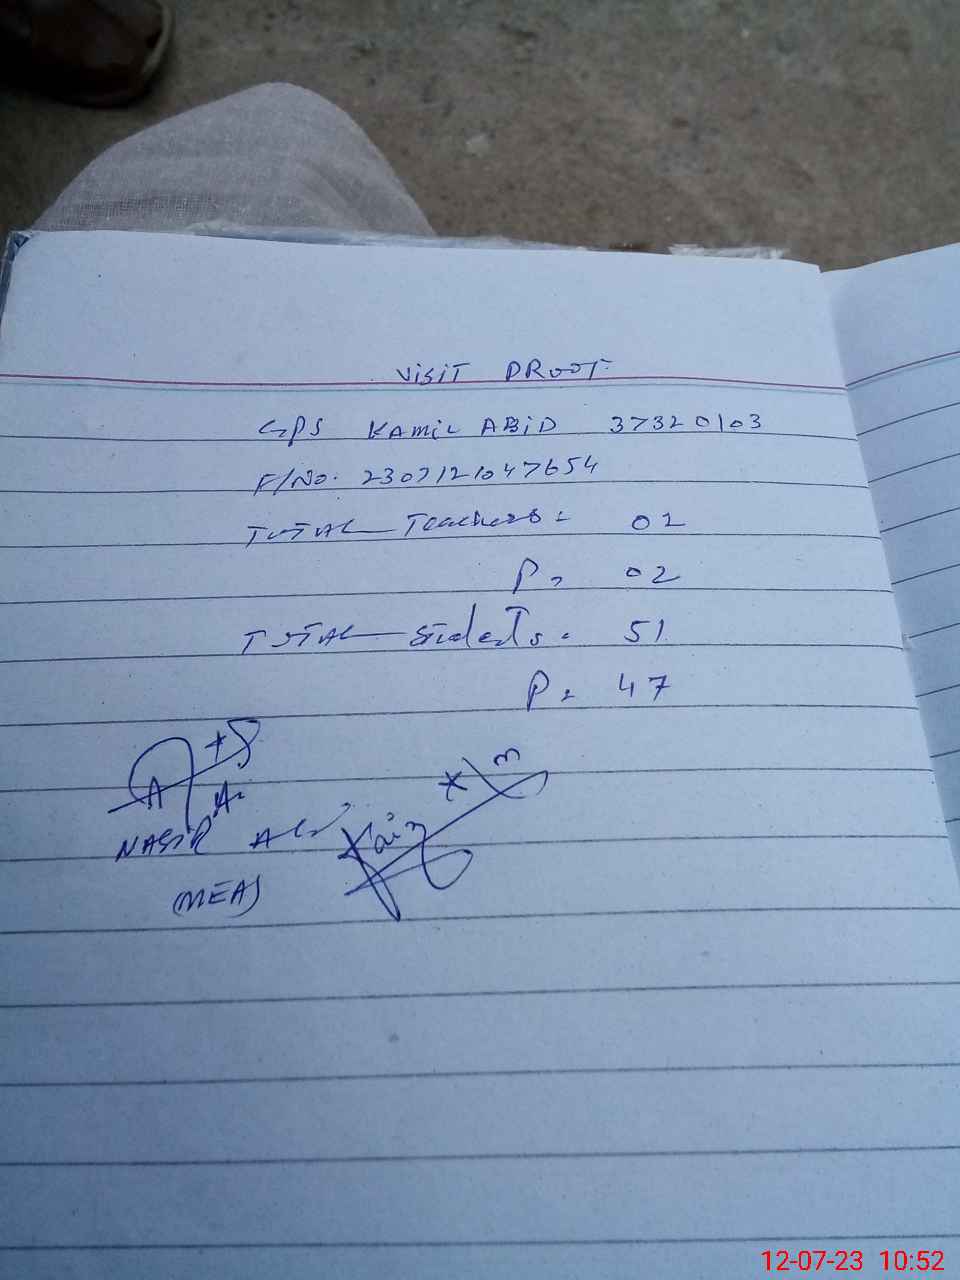 VISIT PROOF
GPS KAMIL ABID 37320103
F/No. 2307121047654
TOTAL Teachers = 02
P = 02
TOTAL Students = 51
P = 47
NASIR ALI
(MEA)
12-07-23 10:52